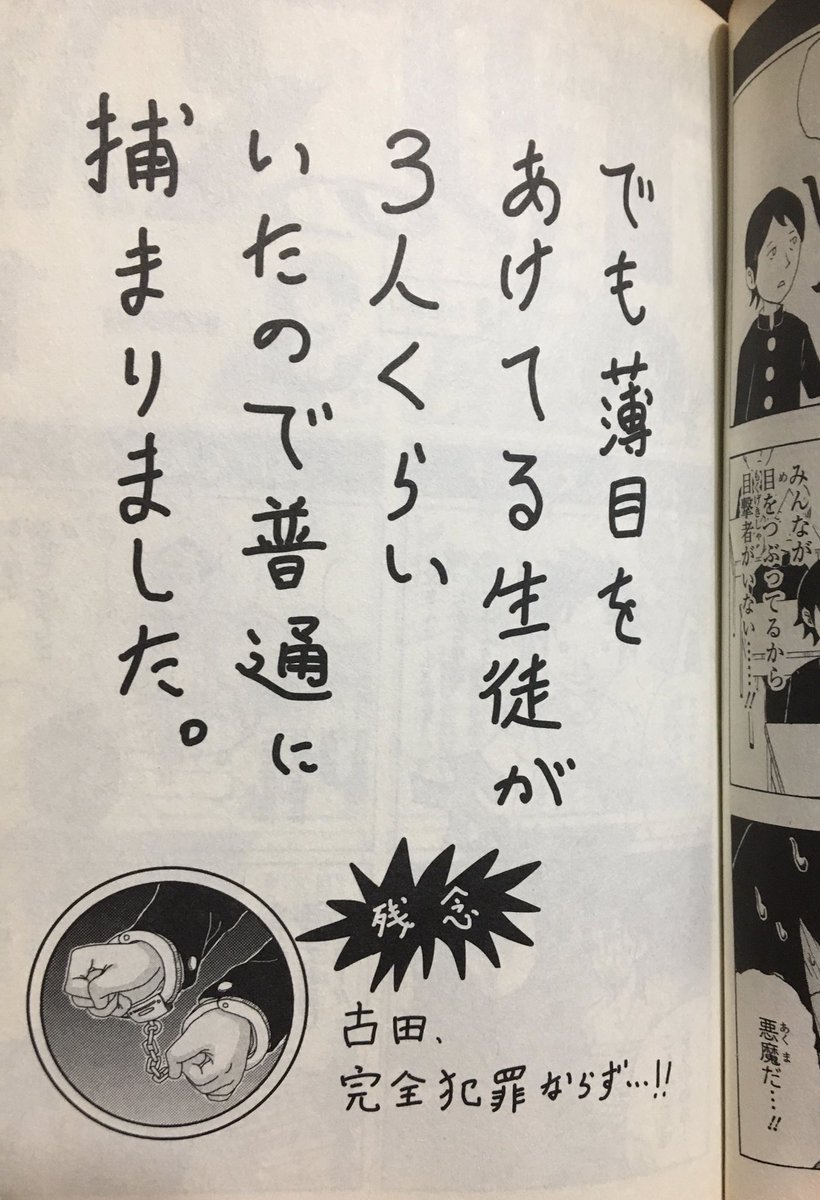 みんなが
目をつぶってるから
目撃者がいない……!!
悪魔だ…!!
でも薄目を
あけてる生徒が
3人くらい
いたので普通に
捕まりました。
残念
古田、
完全犯罪ならず…!!